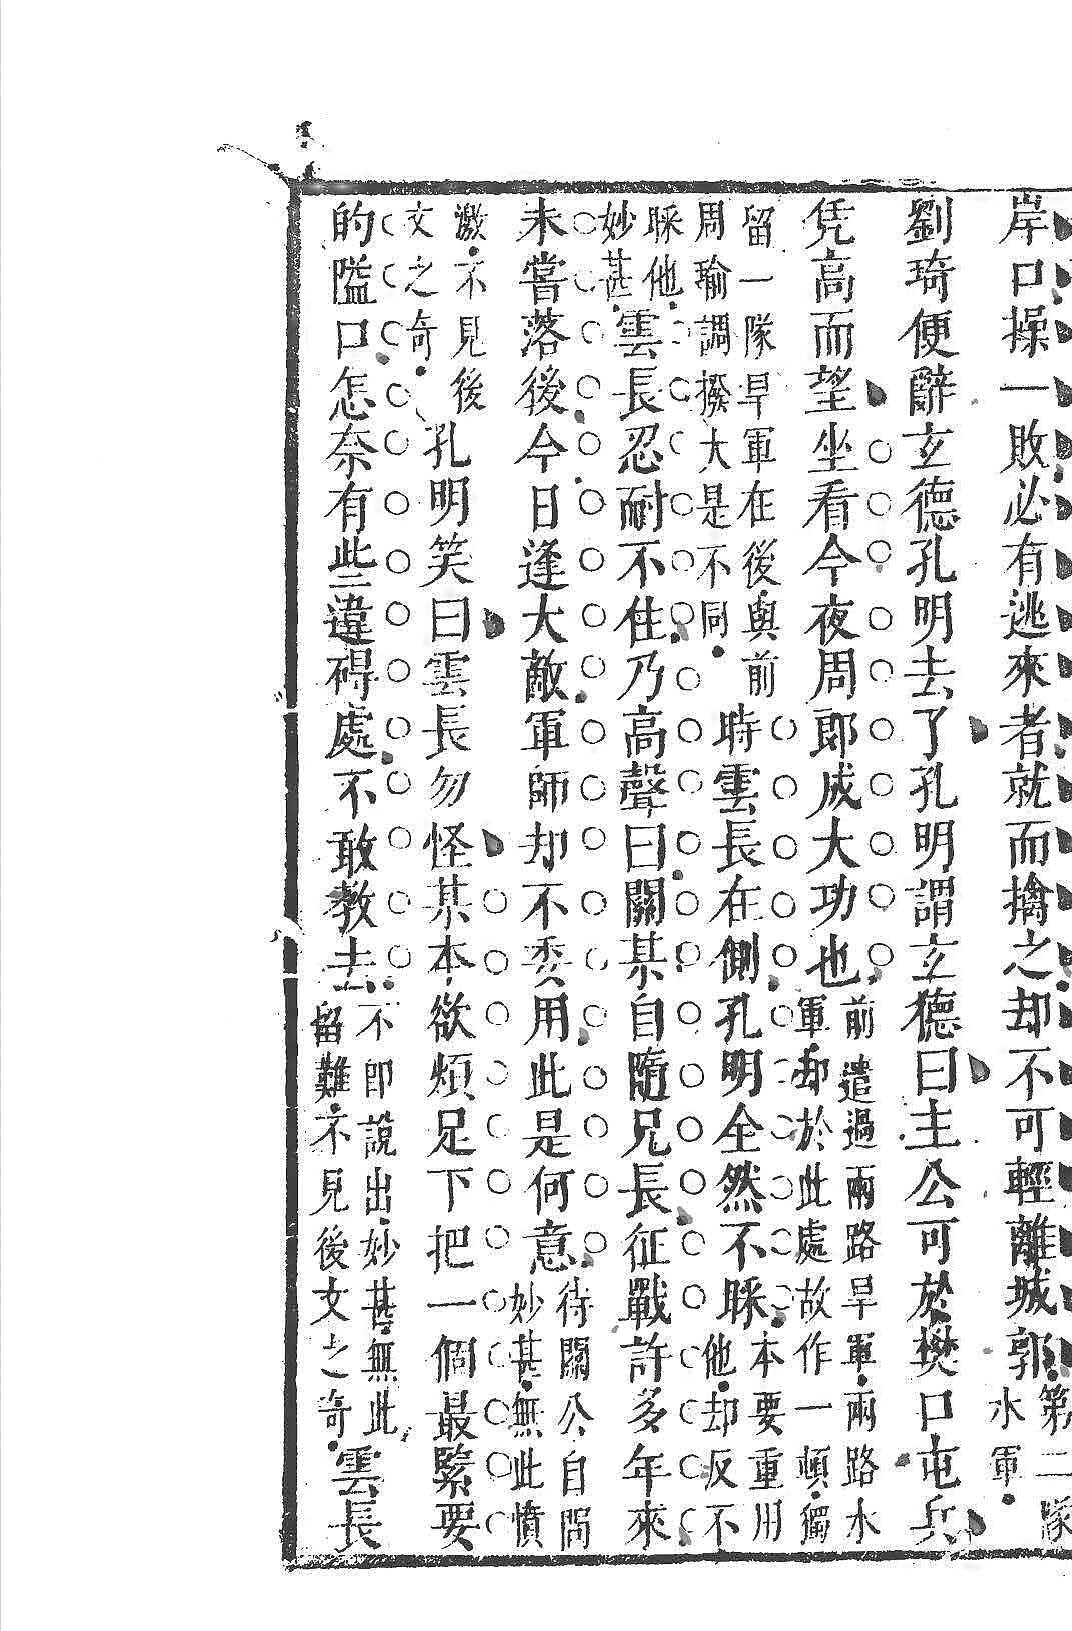 岸口操一敗必有逃來者就而擒之却不可輕離城郭第二隊水軍
劉琦便辭玄德孔明去了孔明謂玄德曰主公可於樊口屯兵
凭高而望坐看今夜周郎成大功也前遣過兩路旱軍兩路水軍却於此處故作一頓獨
留一隊旱軍在後與前周瑜調撥大是不同時雲長在側孔明全然不睬本要重用他却反不
睬他妙甚雲長忍耐不住乃高聲曰關某自隨兄長征戰許多年來
未嘗落後今日逢大敵軍師却不委用此是何意待關公自問妙甚無此憤
激不見後文之奇孔明笑曰雲長勿怪某本欲煩足下把一個最緊要
的隘口怎奈有些違碍處不敢教去不即說出妙甚無此留難不見後文之奇雲長